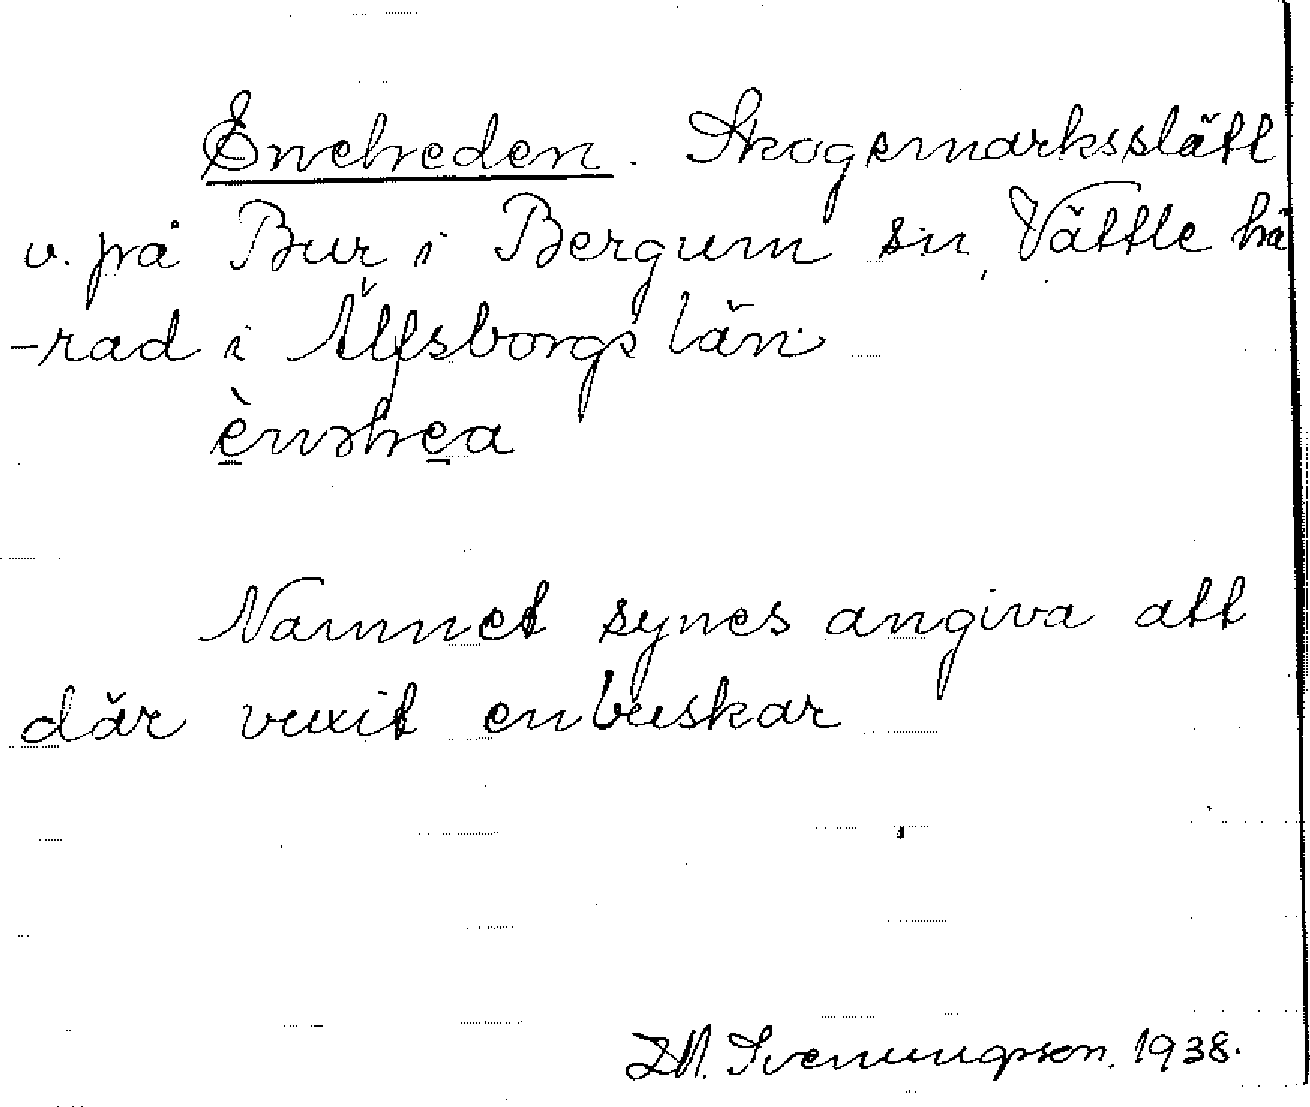 Eneheden. Skogsmarksslätt
v. på Bur i Bergum sn, Vättle hä
-rad i Älfsborgs län.
ènəhea
Namnet synes angiva att
där vuxit enbuskar
Svenungson. 1938.